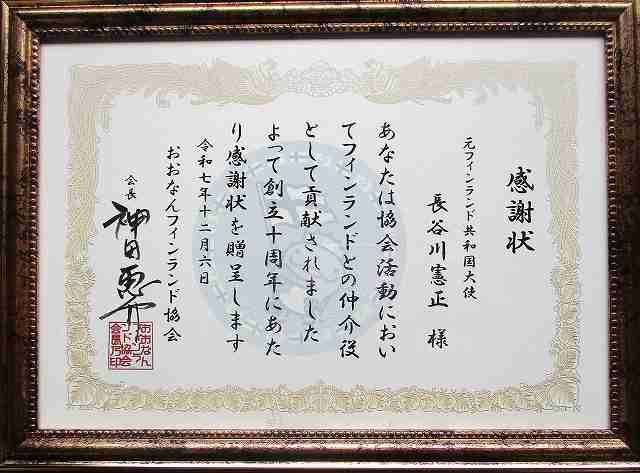 感謝状
元フィンランド共和国大使
長谷川憲正 様
あなたは協会活動におい
てフィンランドとの仲介役
として貢献されました
よって創立十周年にあた
り感謝状を贈呈します
令和七年十二月六日
おおなんフィンランド協会
会長
神田惠介
おおなん
フィンラン
ド協会
会長之印